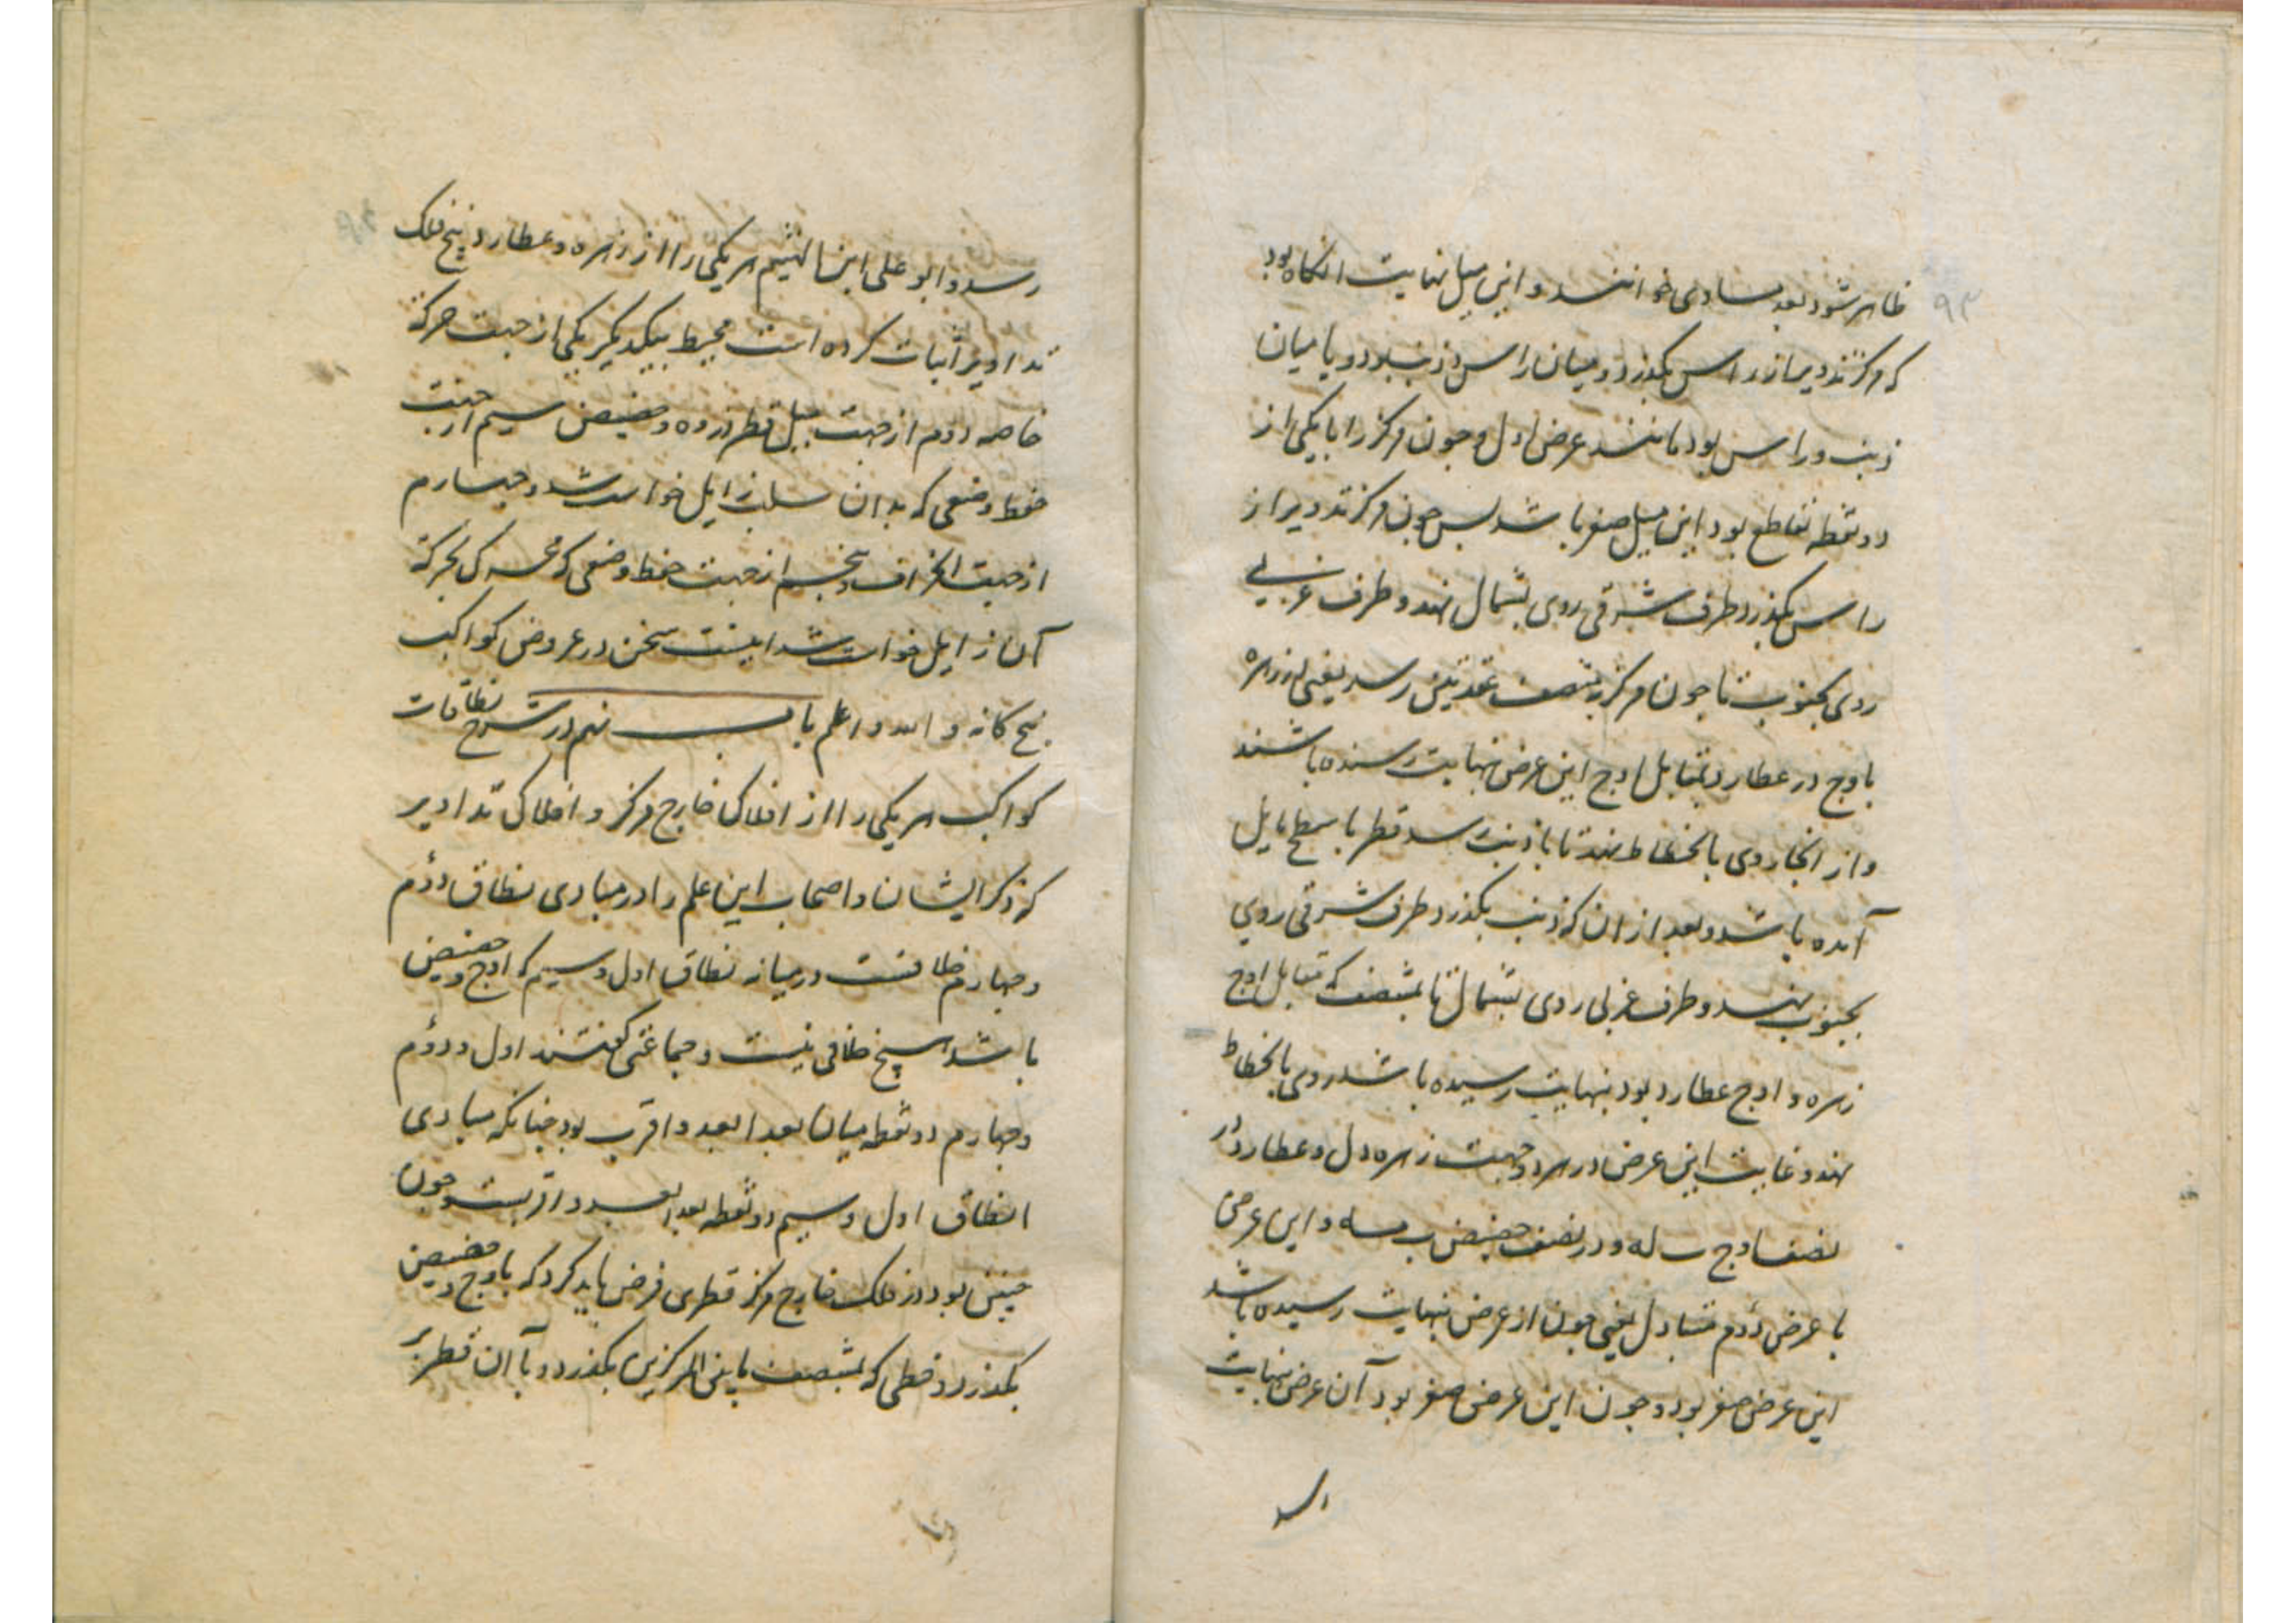 ظاهر شود بعد مساوی خوانند و این میل نهایت انکاه بود
که مرکز تدویر از راس بکذرد و میان راس و ذنب بود و یا میان
ذنب و راس بود مانند عرض اول و چون مرکز را با یکی از
دو نقطه تقاطع بود این میل صفر باشد بس چون مرکز تدویر از
راس بکذرد طرف شرقی روی بشمال نهد و طرف غربی
روی بجنوب تا چون مرکز بمنتصف عقدتین رسد یعنی در زهره
باوج و در عطارد بمقابل اوج این عرض بنهایت رسیده باشند
و از انجا روی بانحطاط نهد تا با ذنب رسد قطر با سطح مایل
آمده باشد و بعد از ان که ذنب بکذرد طرف شرقی روی
بجنوب نهد و طرف غربی روی بشمال تا بمنتصف که مقابل اوج
زهره و اوج عطارد بود بنهایت رسیده باشد روی بانحطاط
نهد و غایت این عرض در هر دو جهت زهره دل و عطارد در
نصف اوج له و در نصف حضیض مه و این عرض
با عرض دوم متبادل یعنی چون از عرض بنهایت رسیده باشد
این عرض صفر بود و چون این عرض صفر بود آن عرض بنهایت
رسد
رسد و ابو علی ابن الهیثم هر یکی را از زهره و عطارد پنج فلک
تداویر اثبات کرده است محیط بیکدیکر یکی از جهت حرکة
خاصه دوم از جهت میل قطر ذروه و حضیض سیم از جهت
حفظ وضعی که بدان سبب زایل خواهد شد و چهارم
از جهت انحراف و پنجم از جهت حفظ وضعی که بحرکة
آن زایل خواست شد اینست سخن در عروض کواکب
پنج کانه و الله اعلم باب نهم در شرح نطاقات
کواکب هر یکی را از افلاک خارج مرکز و افلاک تداویر
که ذکر ایشان و اصحاب این علم را در مبادی نطاق دوم
و چهارم خلافست در میانه نطاق اول و سیم که اوج و حضیض
باشد هیچ خلافی نیست و جماعتی کفتند اول و دوم
و چهارم دو نقطه میان بعد ابعد و اقرب بود چنانکه مبادی
انطاق اول و سیم دو نقطه بعد ابعد و اقربست و چون
چنین بود در فلک خارج مرکز قطری فرض باید کرد که باوج و حضیض
بکذرد و خطی که بمنتصف مابین المرکزین بکذرد و با آن قطر بر